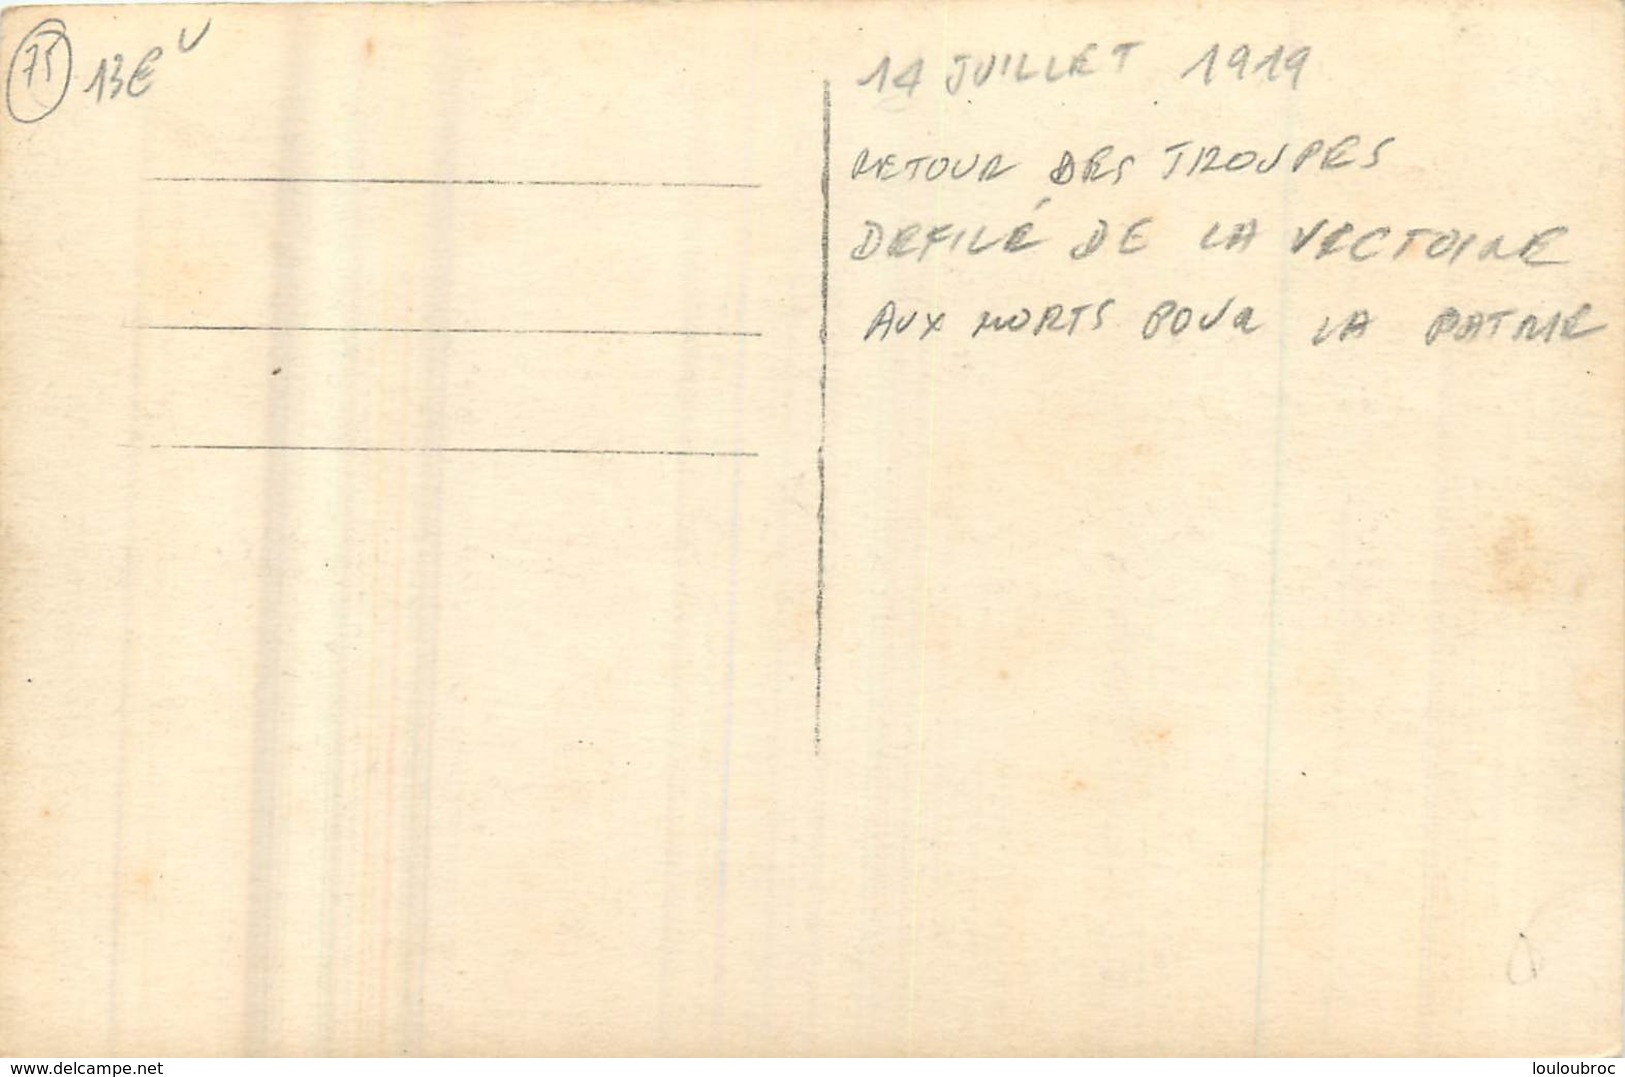 75
13€
14 JUILLET 1919
RETOUR DES TROUPES
DEFILÉ DE LA VICTOIRE
AUX MORTS POUR LA PATRIE
delcampe.net
louloubroc